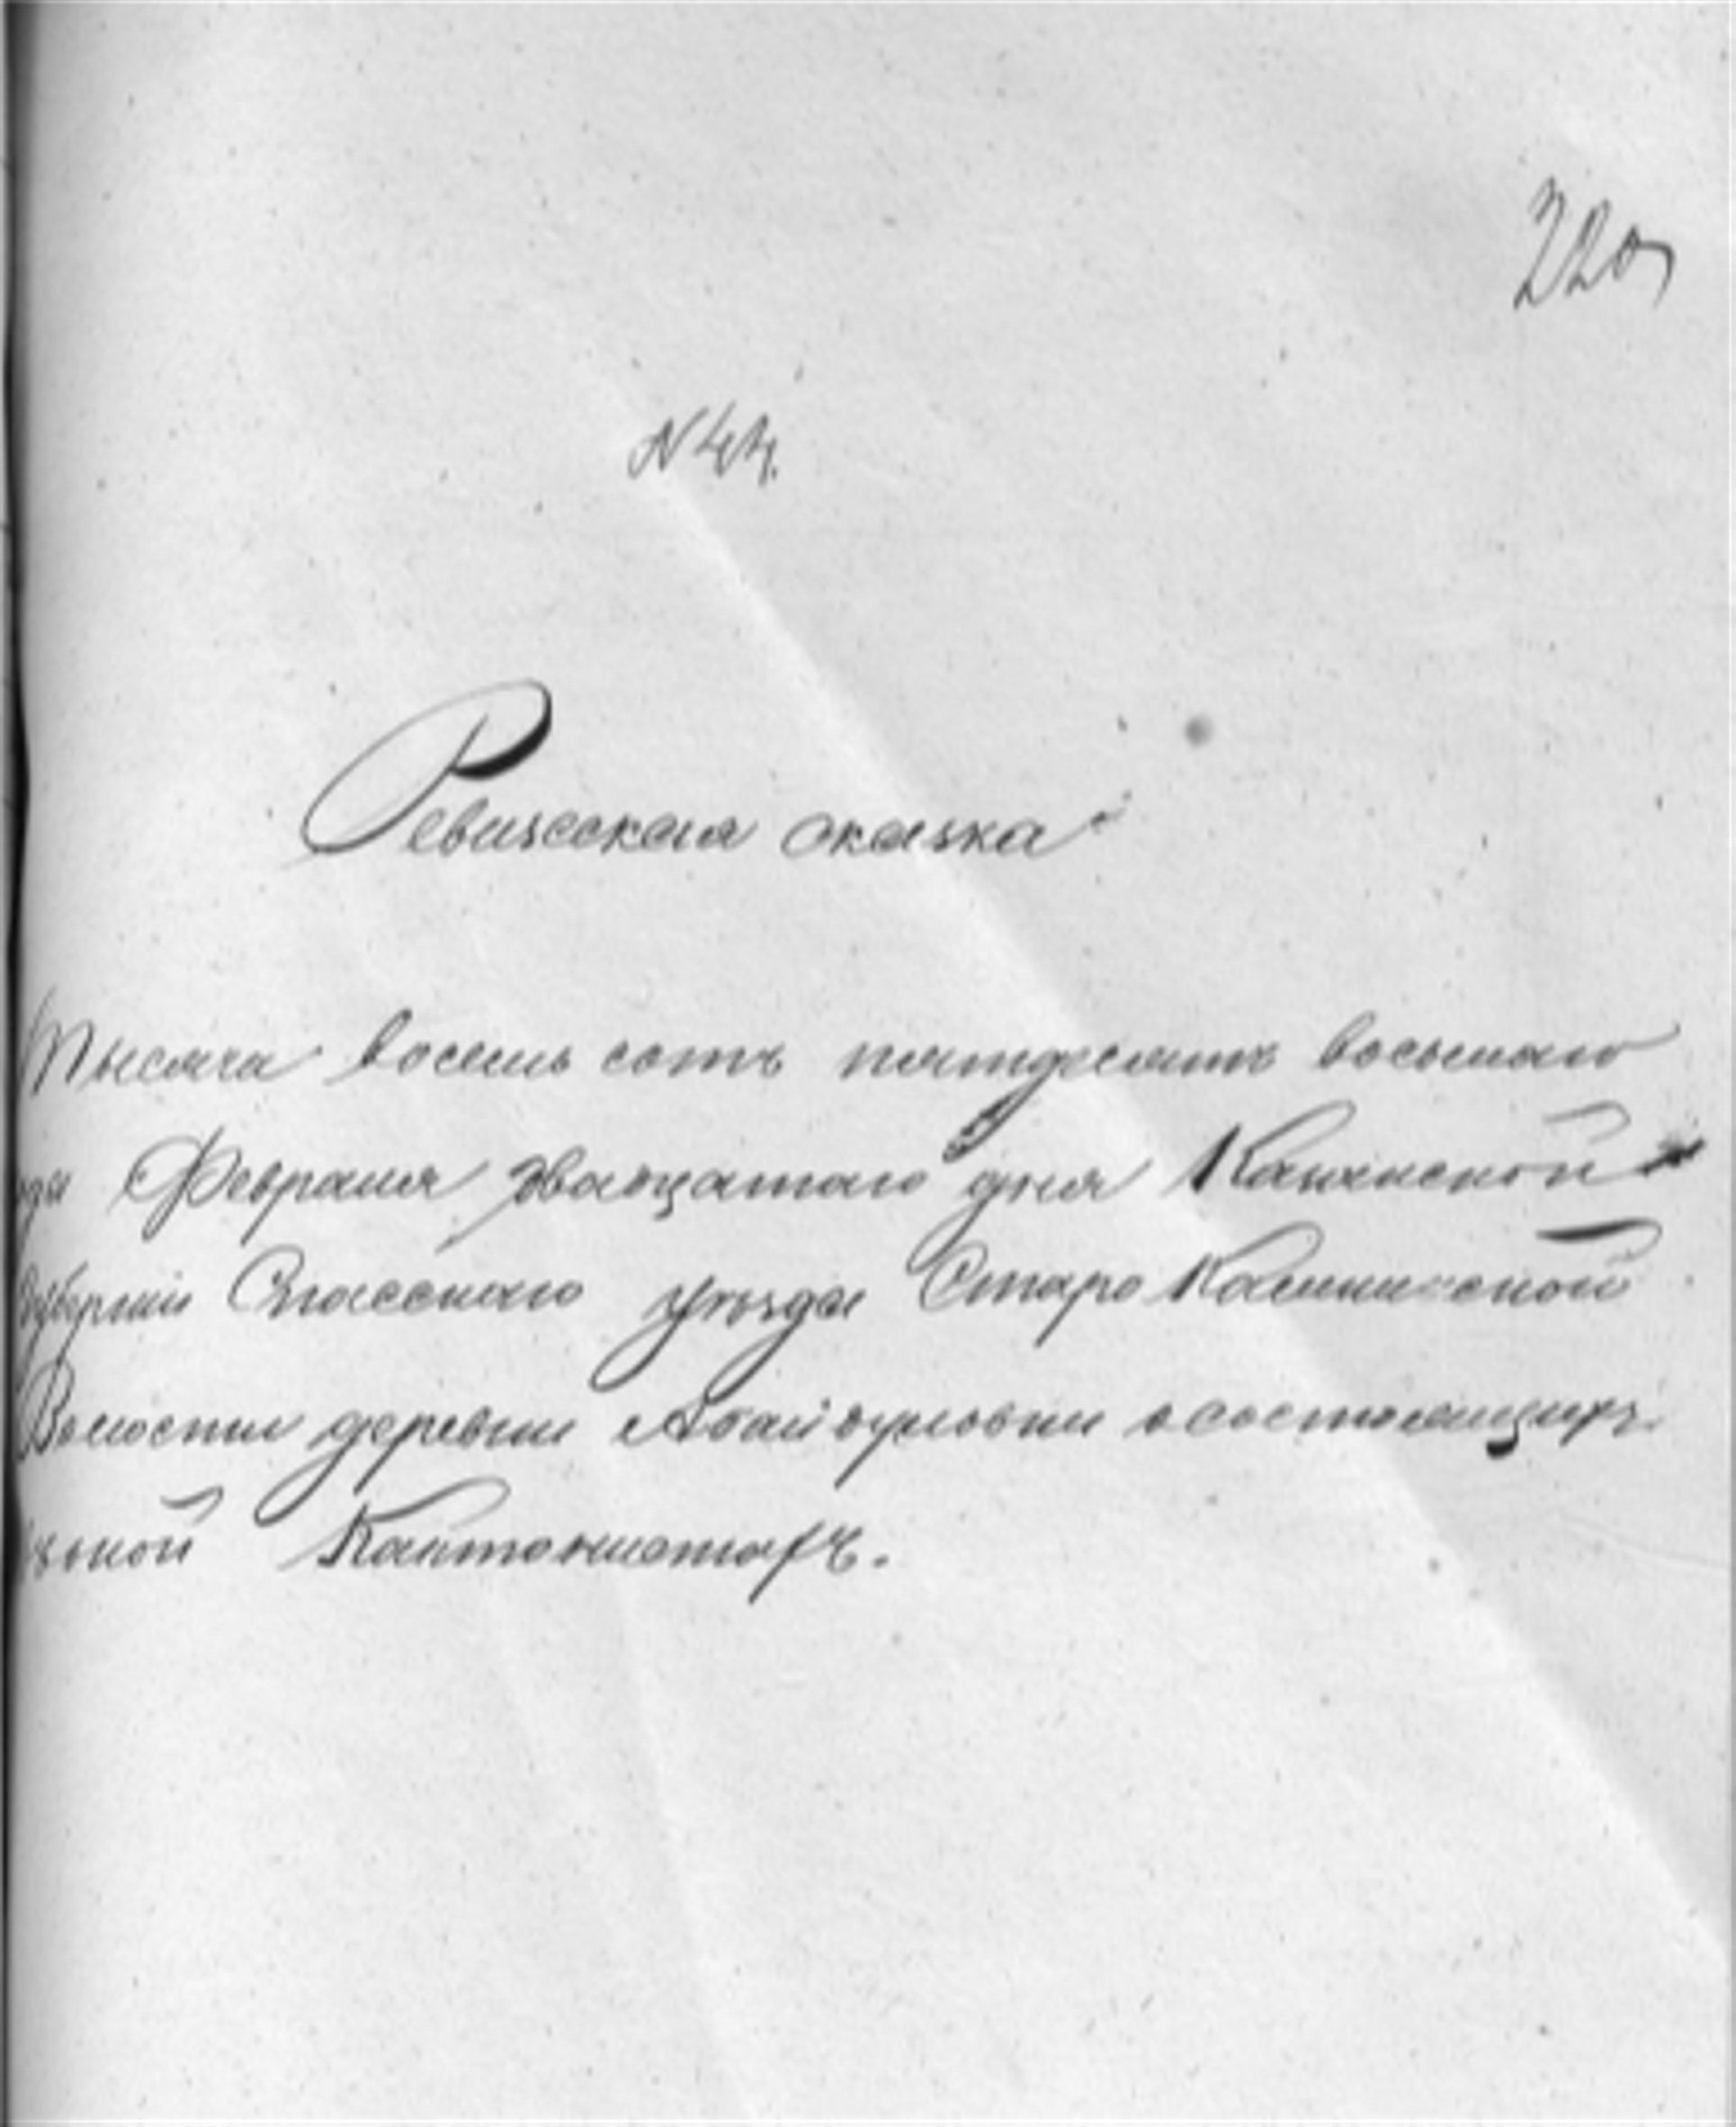 220
N 44.
Ревизская сказка
Тысяча восемь сотъ пятдесятъ восьмаго
ода Февраля двадцатаго дня Казанской
Губерніи Спасскаго уѣзда Старо
Волости деревни о состоящихъ
ьной Кантонистахъ.